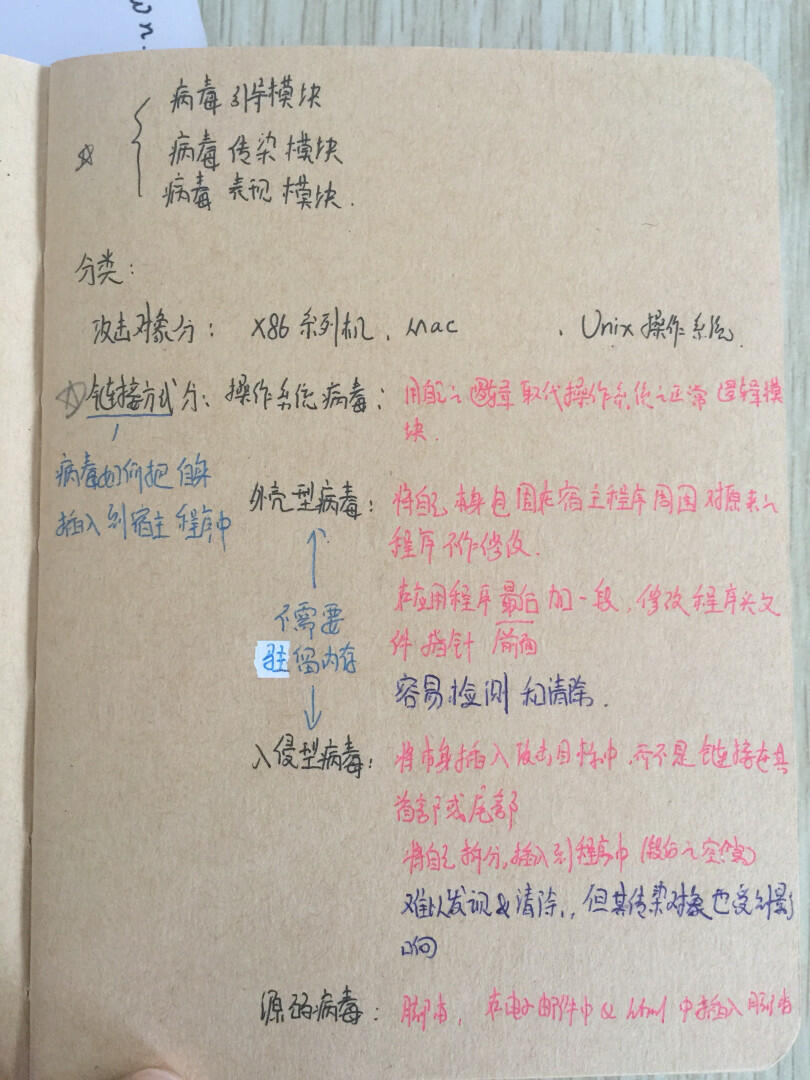 wn.
☆ 病毒引导模块
病毒传染模块
病毒表现模块.
分类:
攻击对象分: X86系列机、Mac 、Unix操作系统.
☆链接方式分: 操作系统病毒: 用自己之逻辑取代操作系统之正常逻辑模
块.
病毒如何把自身
插入到宿主程序中
外壳型病毒: 将自己本身包围在宿主程序周围对原来之
程序不作修改.
在应用程序最后加一段, 修改程序头文
件指针 前面
不需要
驻留内存
容易检测和清除.
入侵型病毒: 将本身插入攻击目标中,而不是链接在其
首部或尾部
将自己拆分,插入到程序中(段后之空隙)
难以发现&清除., 但其传染对象也受到影
响
源码病毒: 脚本, 在电子邮件中&html中插入脚本